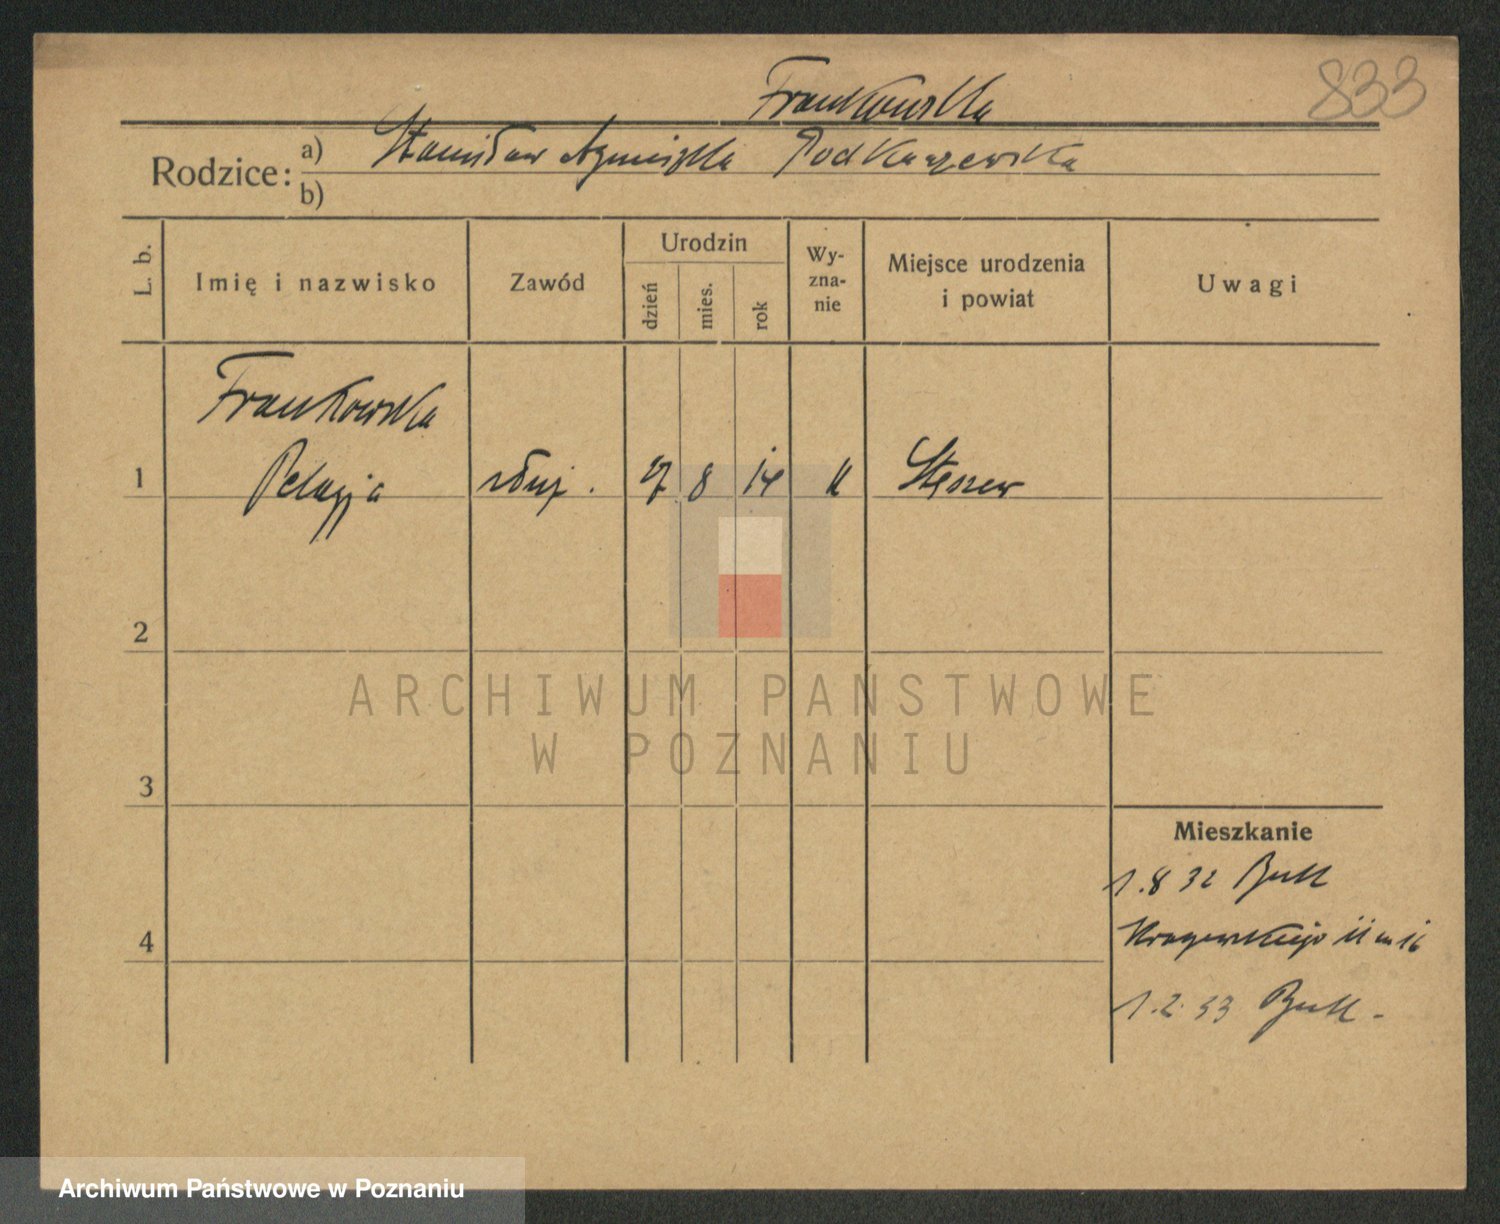 Frankowska
833
Rodzice: a) Stanisław Agnieszka Podkaszewska
b)
L. b. Imię i nazwisko Zawód Urodzin dzień mies. rok Wyzna-nie Miejsce urodzenia i powiat Uwagi
Frankowska
1 Pelagja służ. 8 14 k Stęszew
2
ARCHIWUM PAŃSTWOWE
W POZNANIU
3
Mieszkanie
1.8 32 Buk
4
11 m 16
1.2.33 Buk.
Archiwum Państwowe w Poznaniu